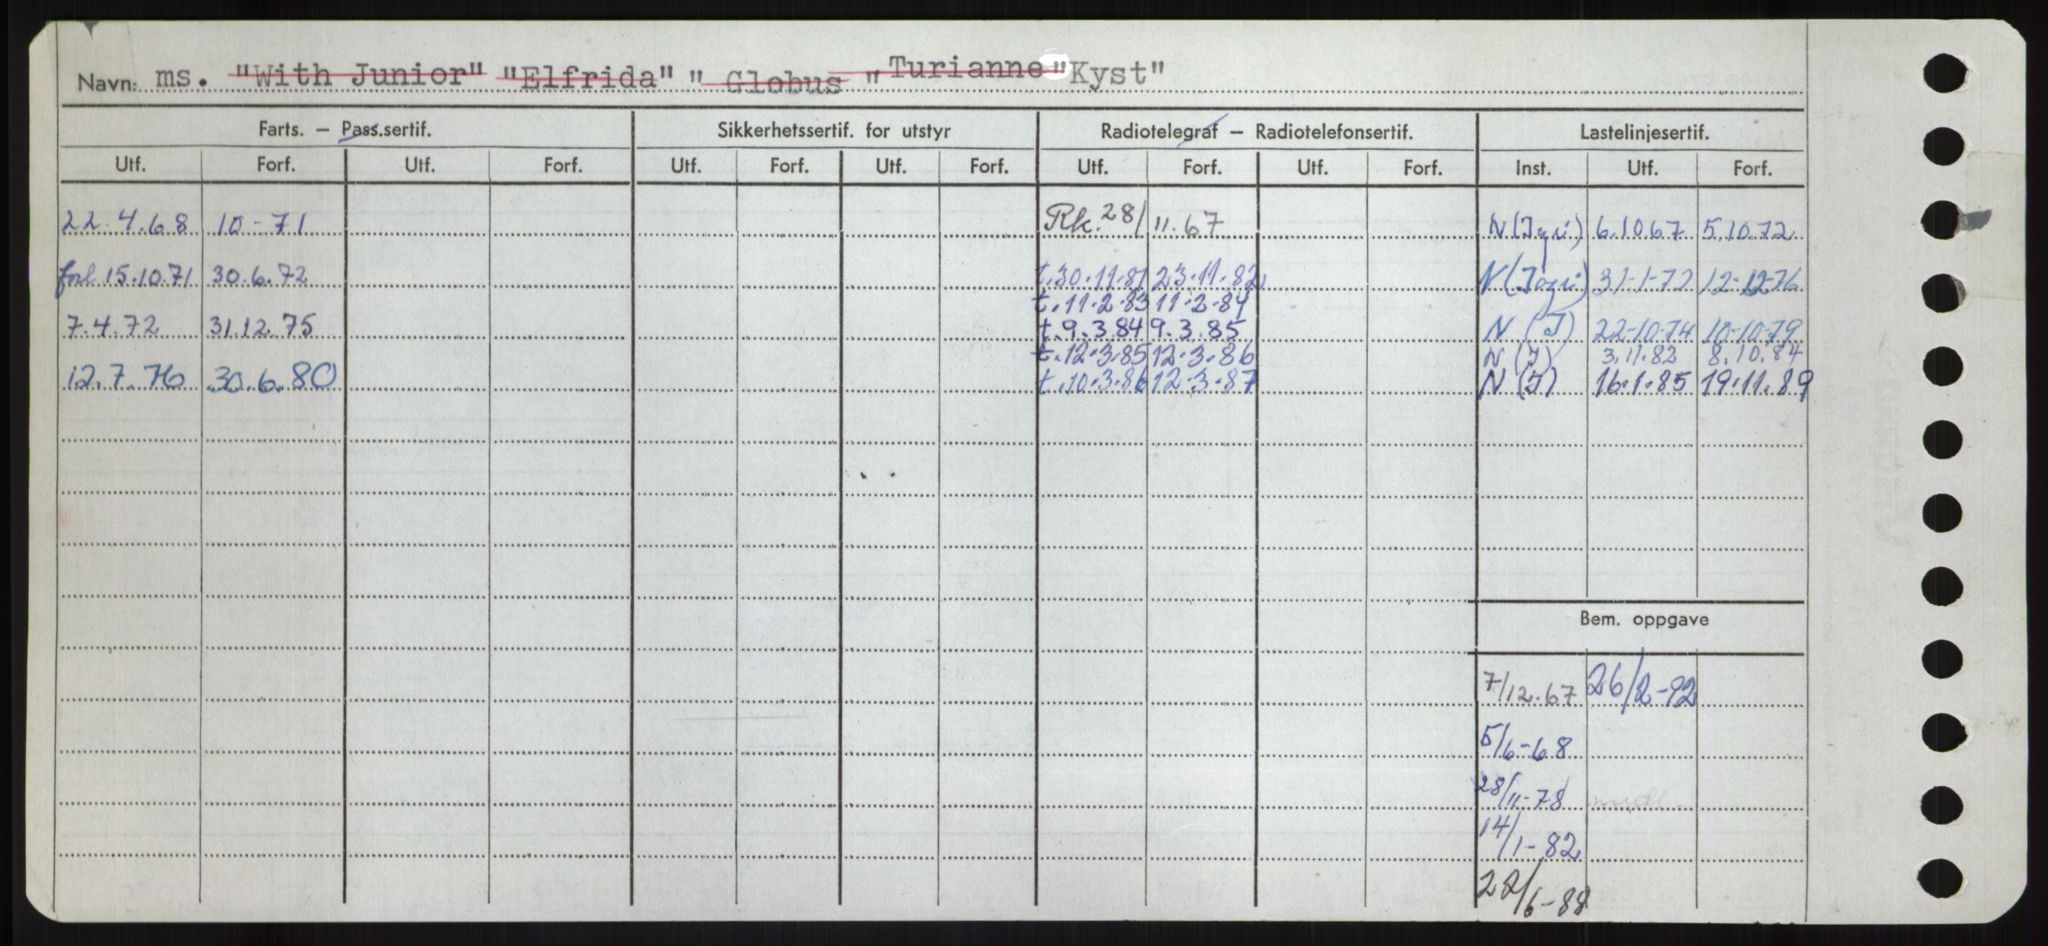 Navn: ms. "With Junior" "Elfrida" " Globus " Turianne "Kyst"
Farts. – Pass.sertif. Sikkerhetssertif. for utstyr Radiotelegraf – Radiotelefonsertif. Lastelinjesertif.
Utf. Forf. Utf. Forf. Utf. Forf. Utf. Forf. Utf. Forf. Utf. Forf. Inst. Utf. Forf.
22.4.68 10-71 Rk. 28/11.67 N 6.10.67 5.10.72
forl 15.10.71 30.6.72 t.30.11.81 23.11.82 N 31-1-72 12-12-76
t.11.2.83 11.2.84
7.4.72 31.12.75 t.9.3.84 9.3.85 N (I) 22-10-74 10-10-79
t.12.3.85 12.3.86 N (I) 3.11.82 8.10.84
12.7.76 30.6.80 t.10.3.86 12.3.87 N (I) 16.1.85 19.11.89
Bem. oppgave
7/12.67 26/2-92
5/6-68
28/11-78
14/1-82
22/6-88